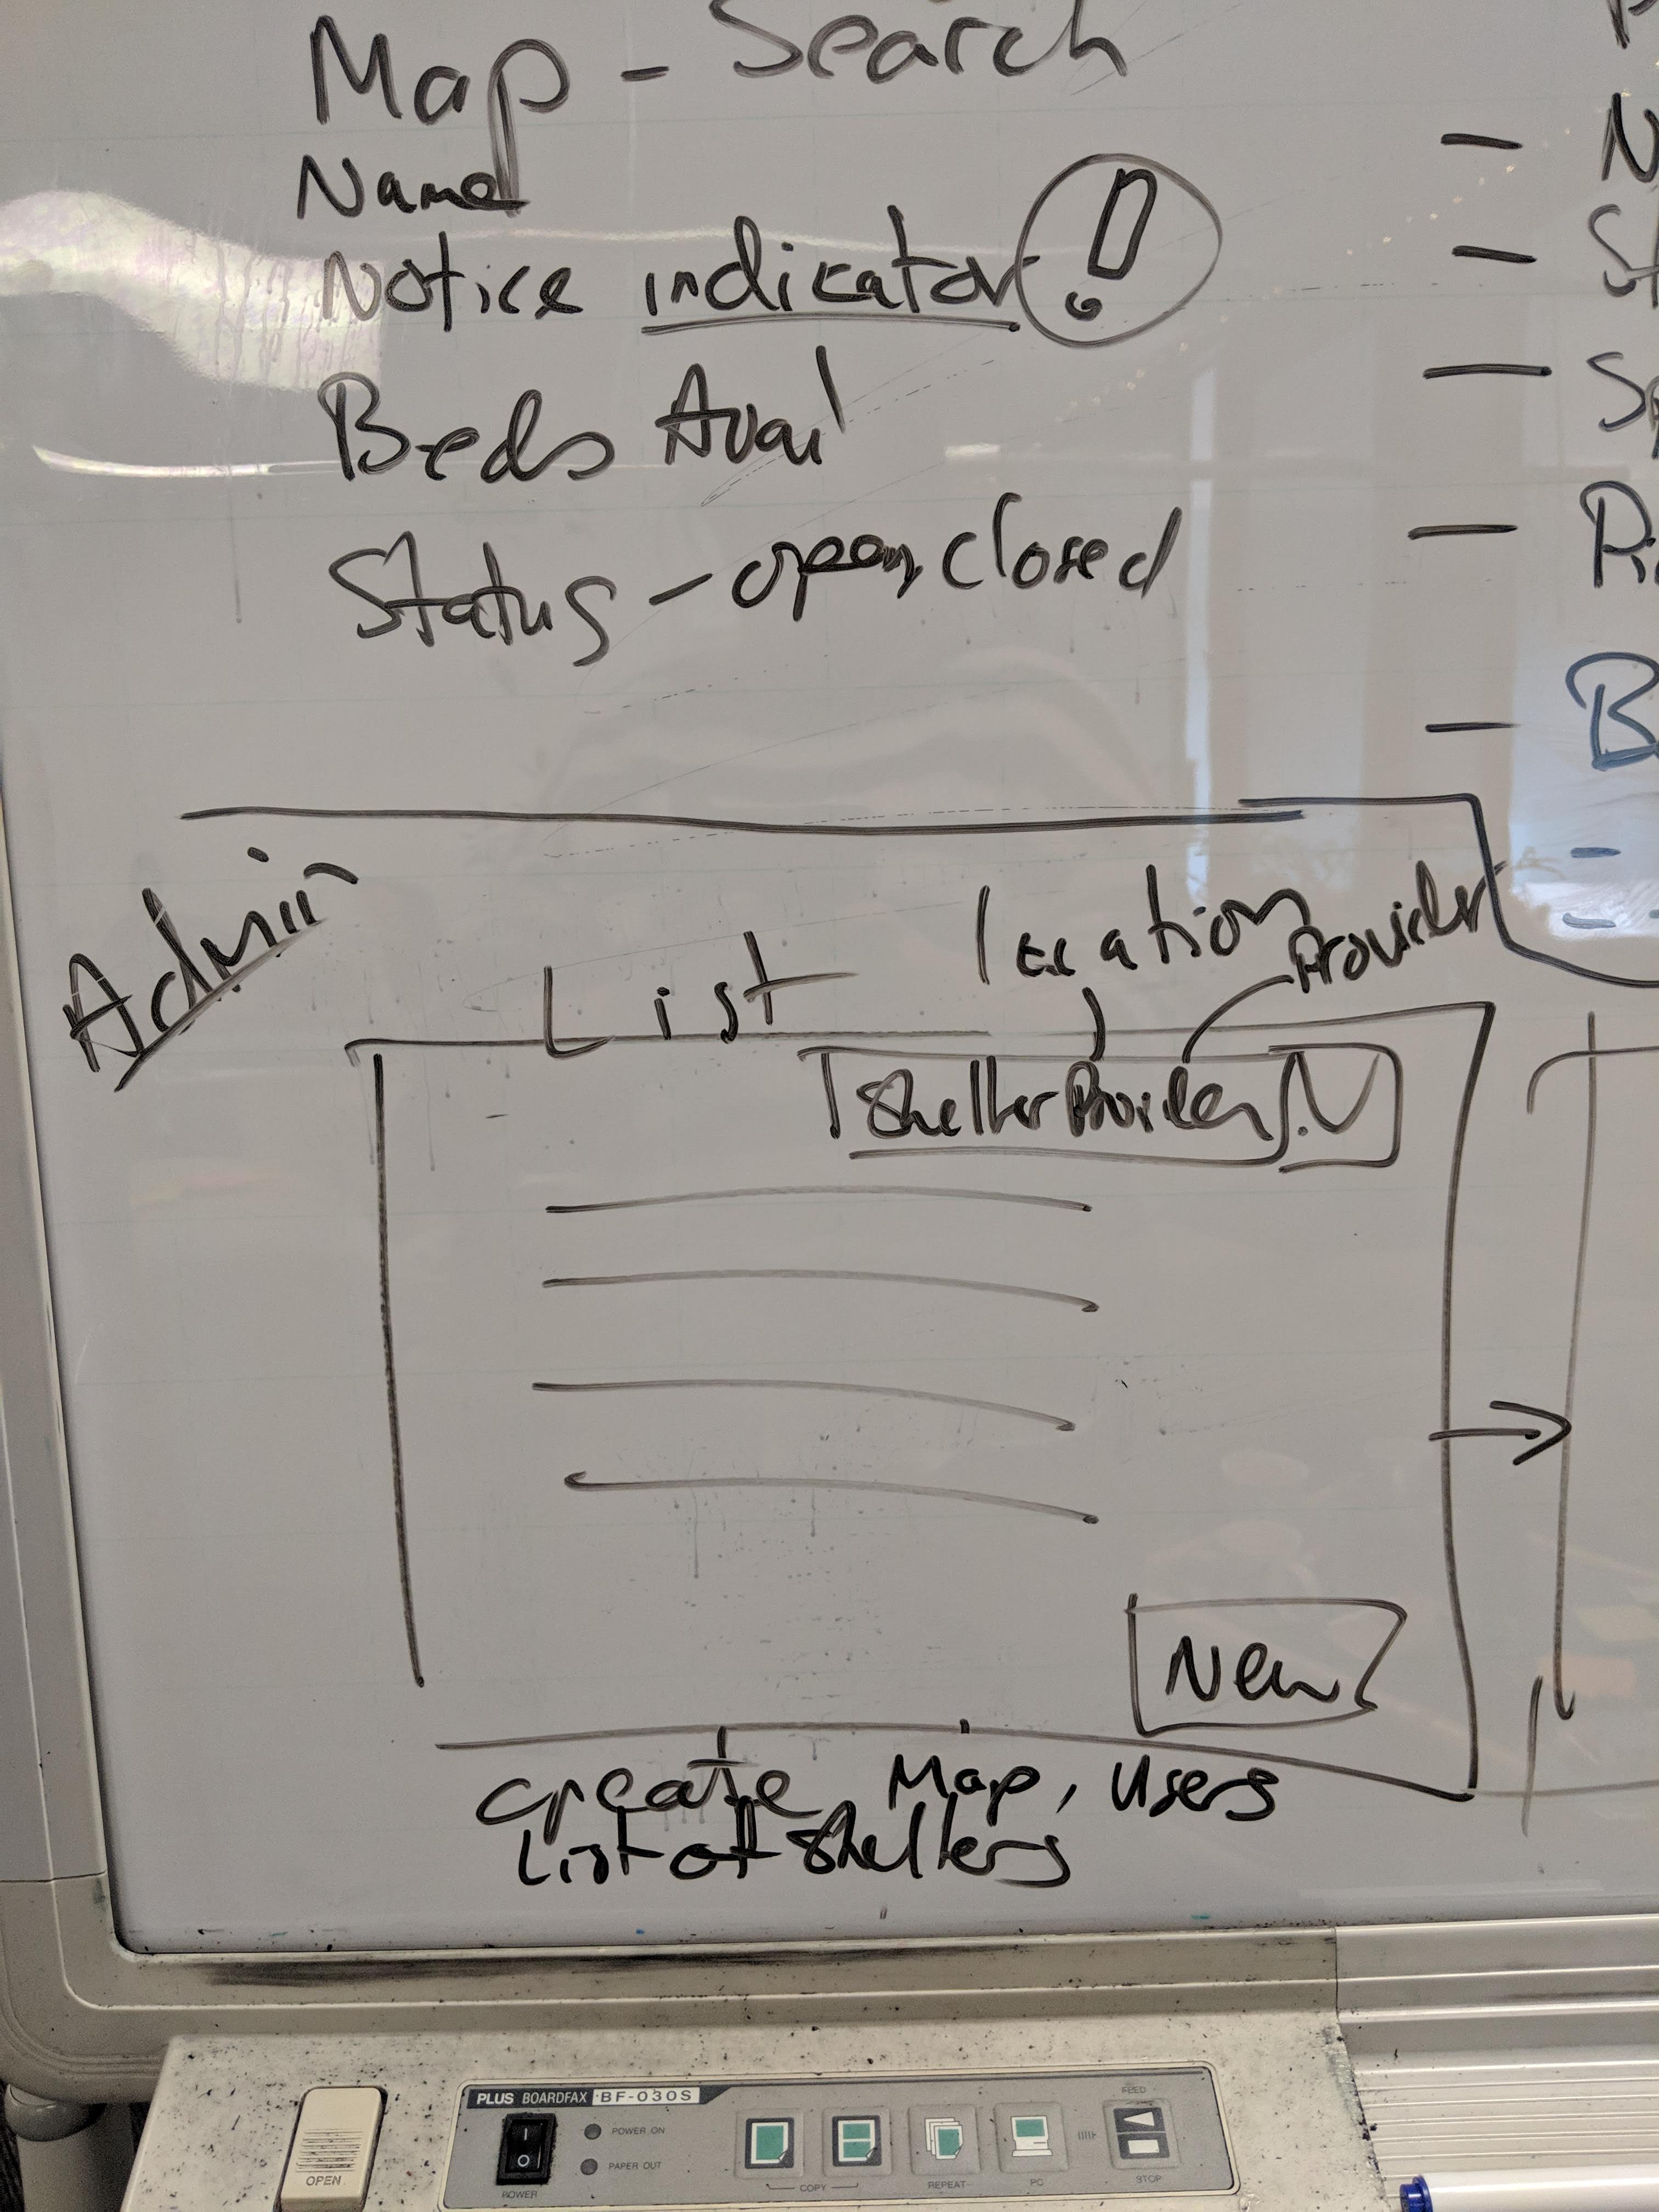 Map - Search
Name
Notice indicator !
Beds Avail
Status - open, closed
Admin
List
location
Provider
Shelter Provider
New
create Map, Users
List of Shelters
PLUS BOARDFAX BF-030S
POWER ON
PAPER OUT
POWER
COPY
REPEAT
PC
FEED
STOP
OPEN